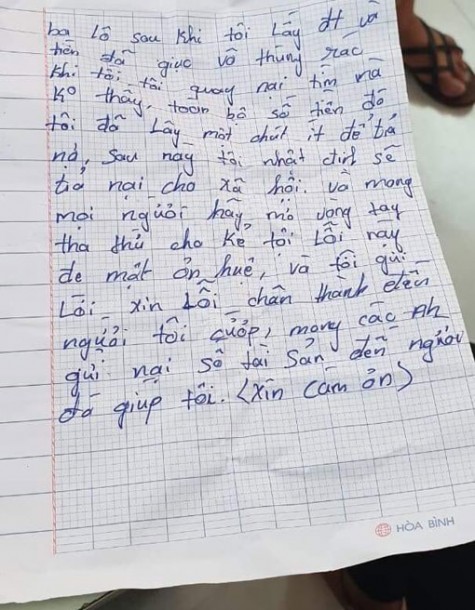 ba lô sau khi tôi lấy đt và
tiền đã giục vô thùng rác
khi tôi tôi quay nai tìm mà
ko thấy, toàn bộ số tiền đó
tôi đã lấy một chút ít để trả
nợ, sau này tôi nhất định sẽ
trả nại cho xã hội. và mong
mọi người hãy mở vòng tay
tha thứ cho kẻ tội lỗi này
de mất ơn huệ, và tôi gửi
Lời xin Lỗi chân thành đến
người tôi cướp, mong các Ah
gửi nại số tài sản đến người
đã giúp tôi. (xin cảm ơn)
HÒA BÌNH